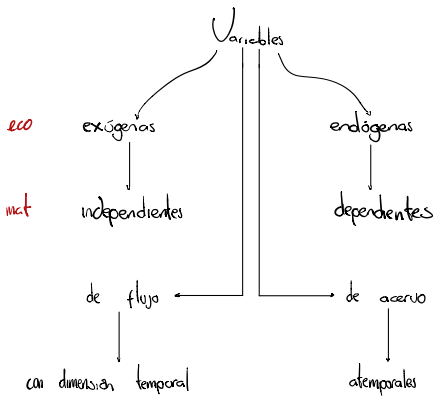 Variables
eco exógenas endógenas
mat independientes dependientes
de flujo de acervo
con dimensión temporal atemporales